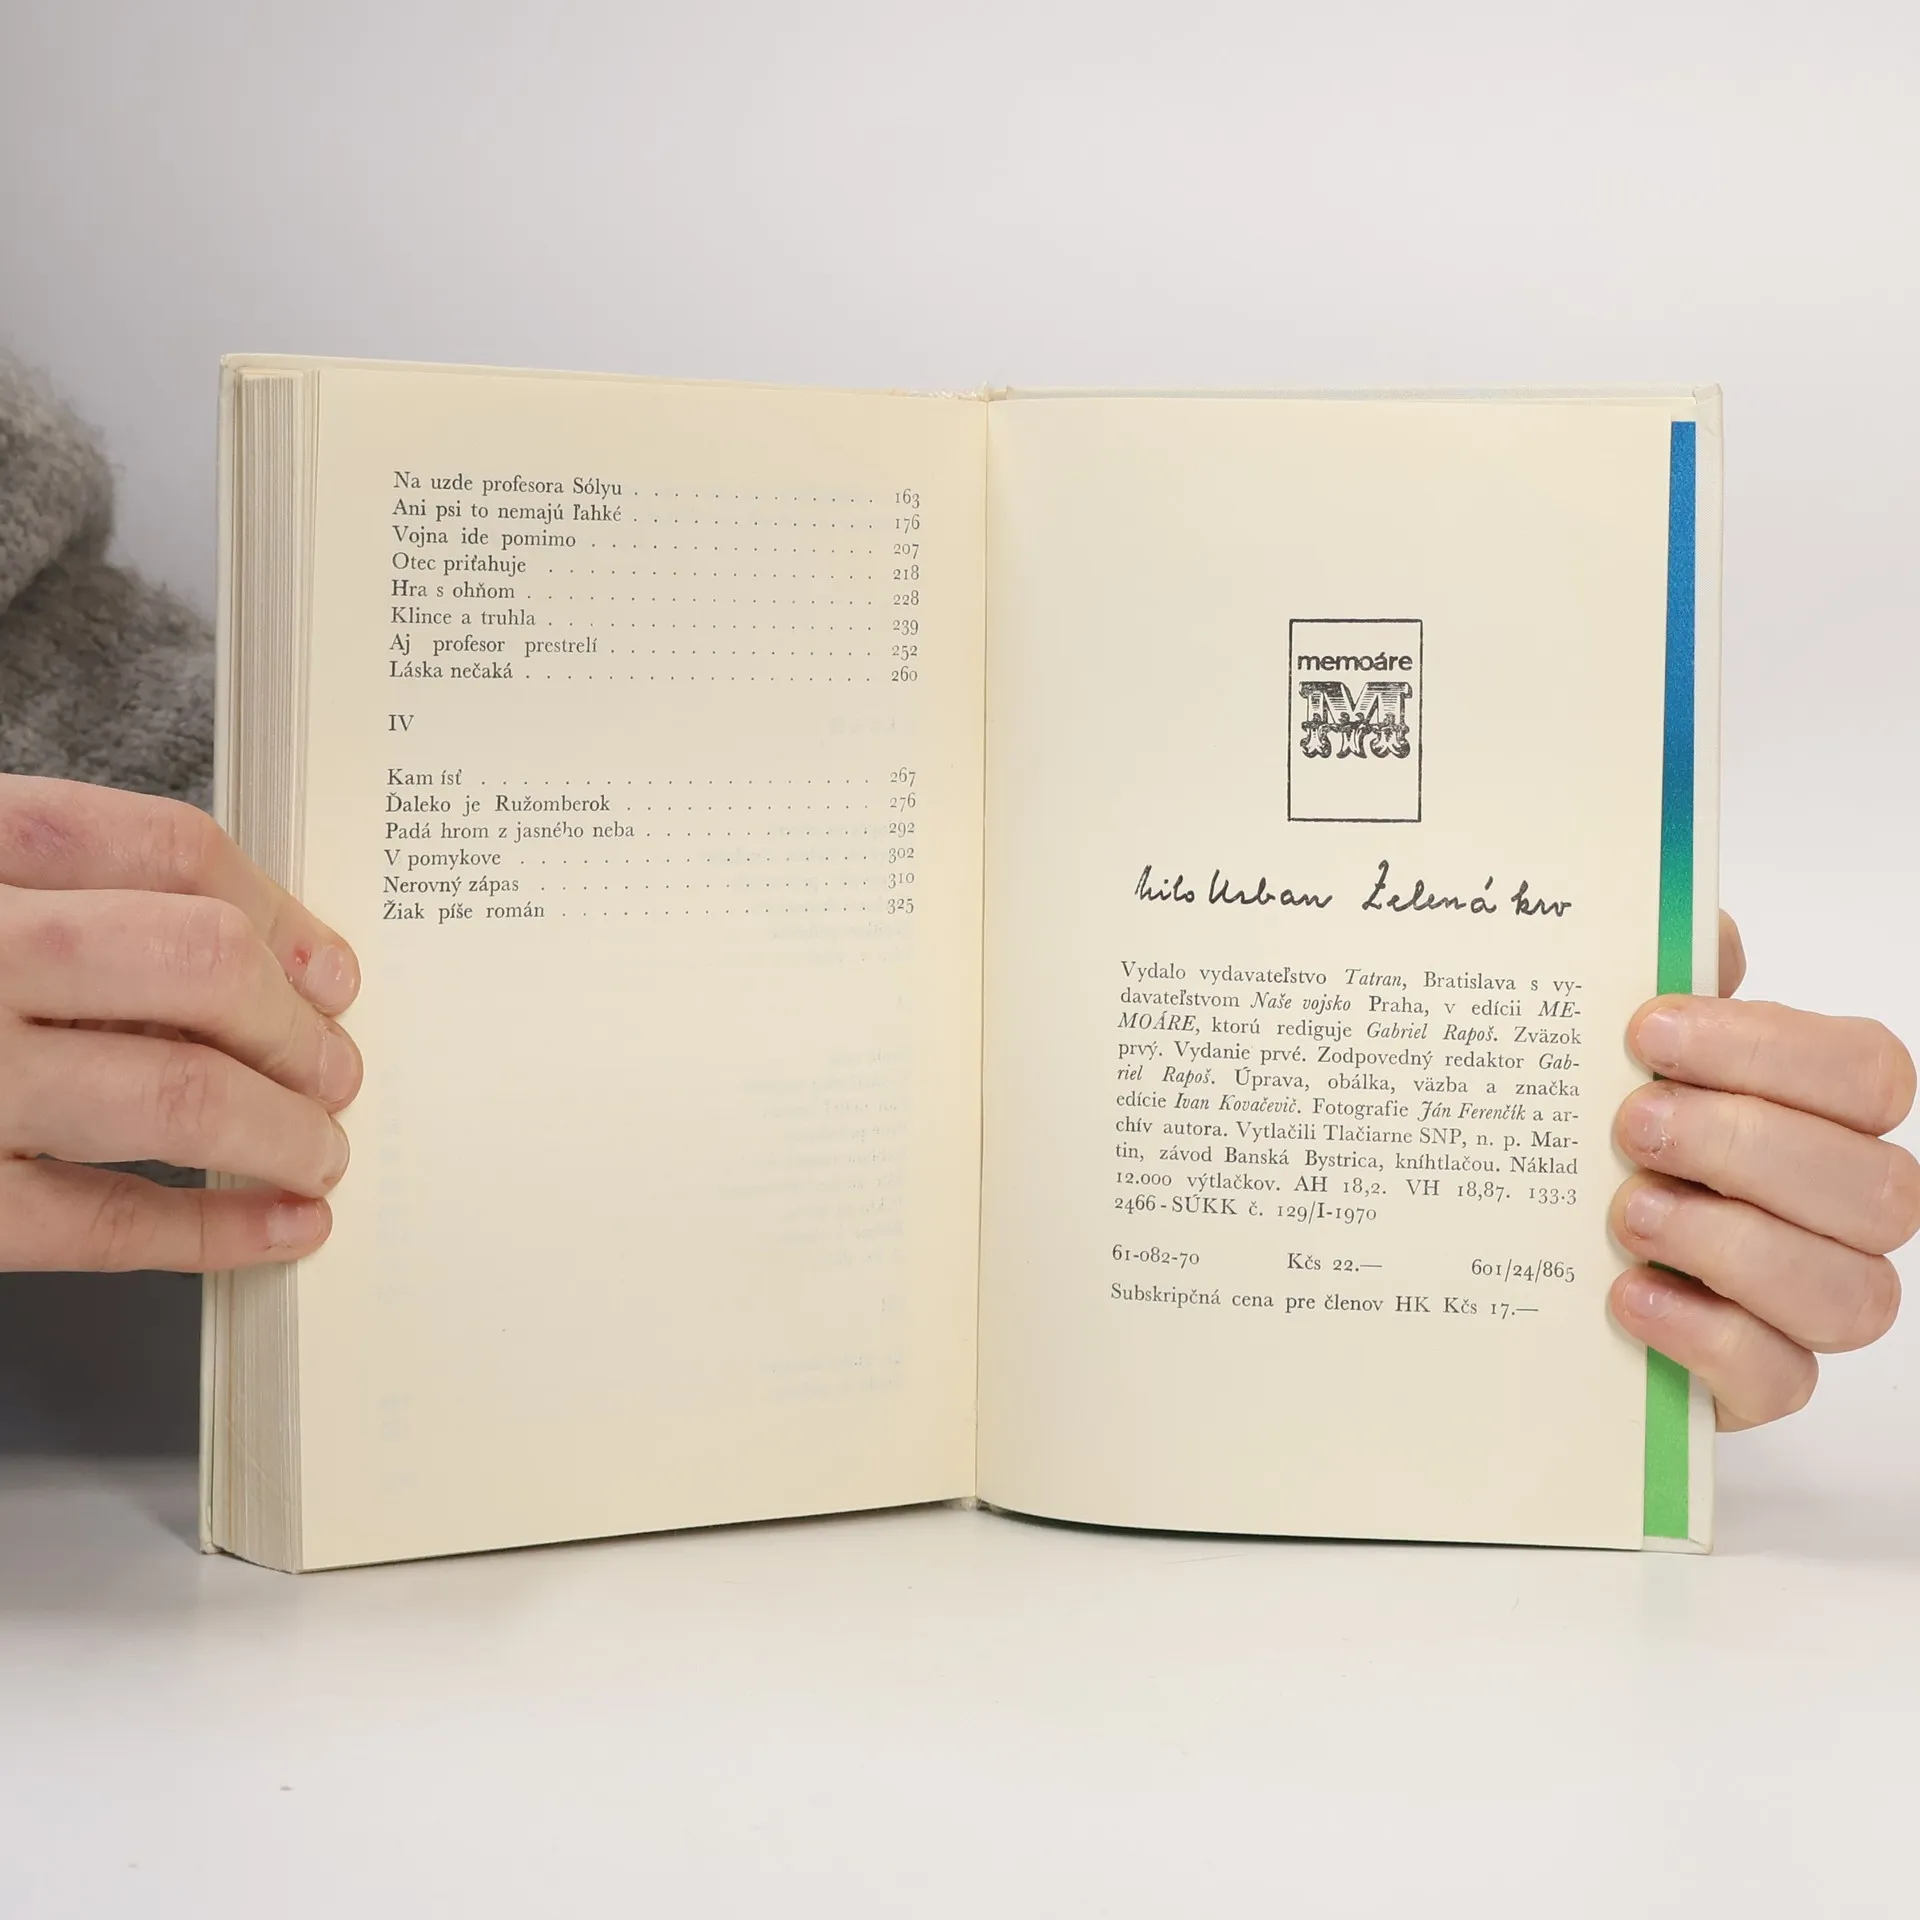 Na uzde profesora Sólyu . . . . . . . . . . . . 163
Ani psi to nemajú ľahké . . . . . . . . . . . . 176
Vojna ide pomimo . . . . . . . . . . . . . . 207
Otec priťahuje . . . . . . . . . . . . . . . . 218
Hra s ohňom . . . . . . . . . . . . . . . . . 228
Klince a truhla . . . . . . . . . . . . . . . . 239
Aj profesor prestrelí . . . . . . . . . . . . . 252
Láska nečaká . . . . . . . . . . . . . . . . . 260
IV
Kam ísť . . . . . . . . . . . . . . . . . . . 267
Ďaleko je Ružomberok . . . . . . . . . . . . 276
Padá hrom z jasného neba . . . . . . . . . . . 292
V pomykove . . . . . . . . . . . . . . . . . 302
Nerovný zápas . . . . . . . . . . . . . . . . 310
Žiak píše román . . . . . . . . . . . . . . . 325
memoáre
M
Milo Urban Zelená krv
Vydalo vydavateľstvo Tatran, Bratislava s vy-
davateľstvom Naše vojsko Praha, v edícii ME-
MOÁRE, ktorú rediguje Gabriel Rapoš. Zväzok
prvý. Vydanie prvé. Zodpovedný redaktor Gab-
riel Rapoš. Úprava, obálka, väzba a značka
edície Ivan Kovačevič. Fotografie Ján Ferenčík a ar-
chív autora. Vytlačili Tlačiarne SNP, n. p. Mar-
tin, závod Banská Bystrica, kníhtlačou. Náklad
12.000 výtlačkov. AH 18,2. VH 18,87. 133-3
2466 - SÚKK č. 129/I-1970
61-082-70 Kčs 22.— 601/24/865
Subskripčná cena pre členov HK Kčs 17.—